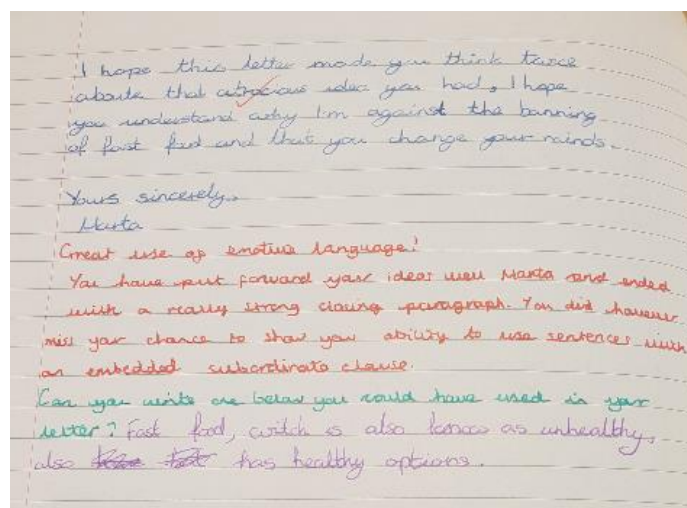 I hope this letter made you think twice
aboute that atrocious idea you had, I hope
you understand why I'm against the banning
of fast food and that you change your minds.
Yours sincerely,
Marta
Great use of emotive language!
You have put forward your ideas well Marta and ended
with a really strong closing paragraph. You did however
miss your chance to show your ability to use sentences with
an embedded subordinate clause.
Can you write one below you could have used in your
letter? Fast food, witch is also known as unhealthy,
also has healthy options.